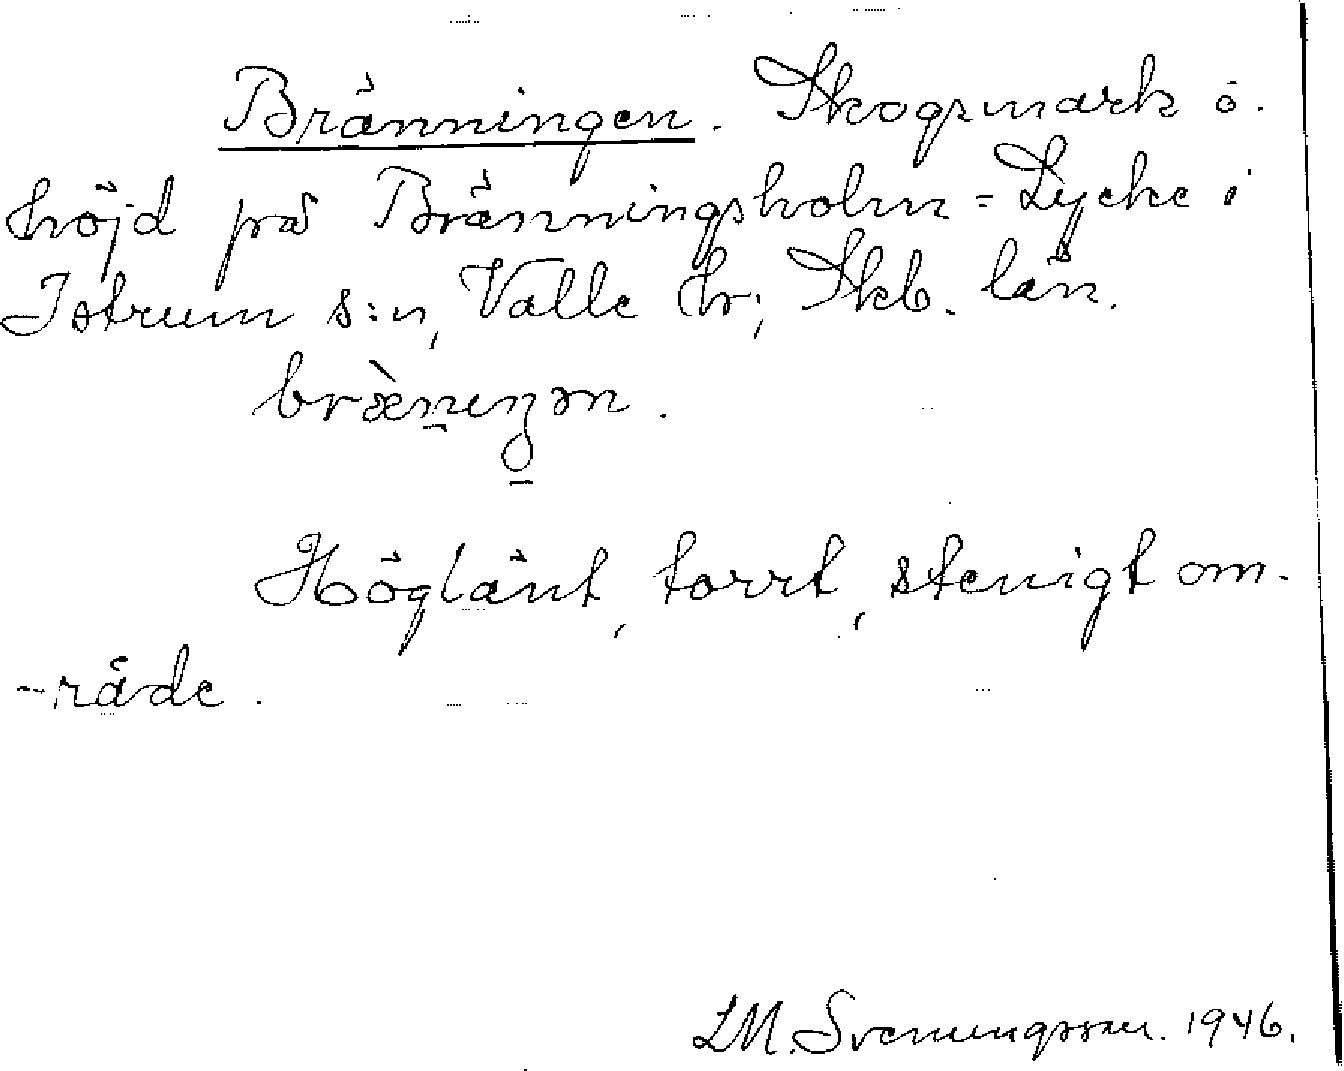 Bränningen. Skogsmark o.
höjd på Bränningsholm = Lycke i
Istrum s:n, Valle hr; Skb. län.
bræ̀neŋən.
Höglänt, torrt, stenigt om-
-råde.
LM. Svenungsson. 1946.